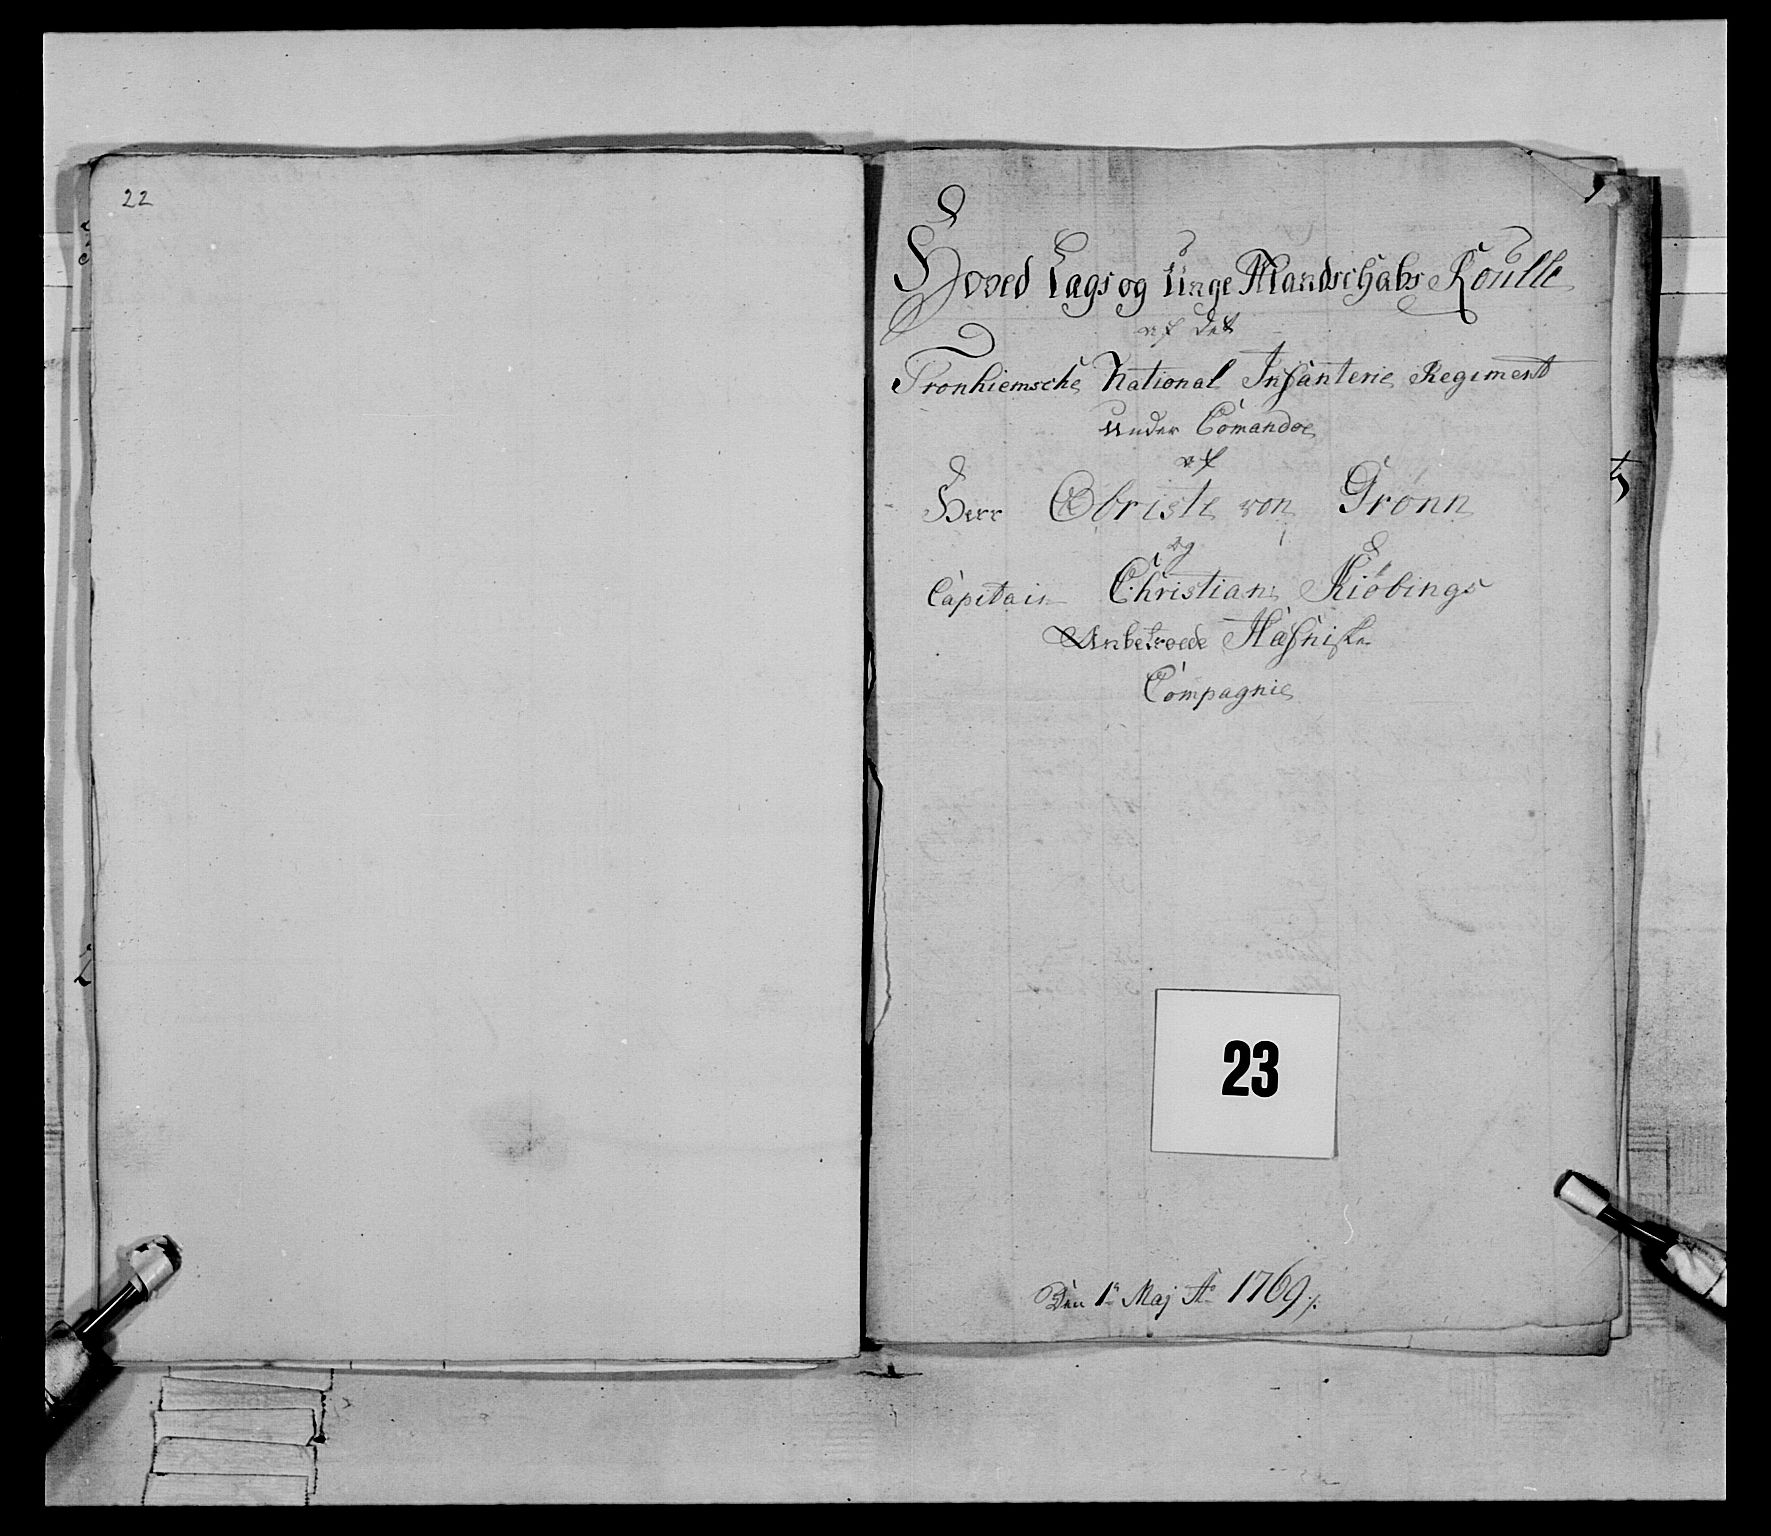 22
Hoved Lags og Unge Mandschabs Roulle
af det
Tronhiemsche National Infanterie Regiment
Under Comandoe
af
Herr Obriste von Grønn
og
Capitain Christian Kiøbings
Anbetroede Hafniske
Compagnie
23
Den 1te Maj Ao 1769 /.